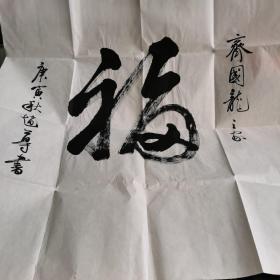 齊國龍
福
庚寅秋
書